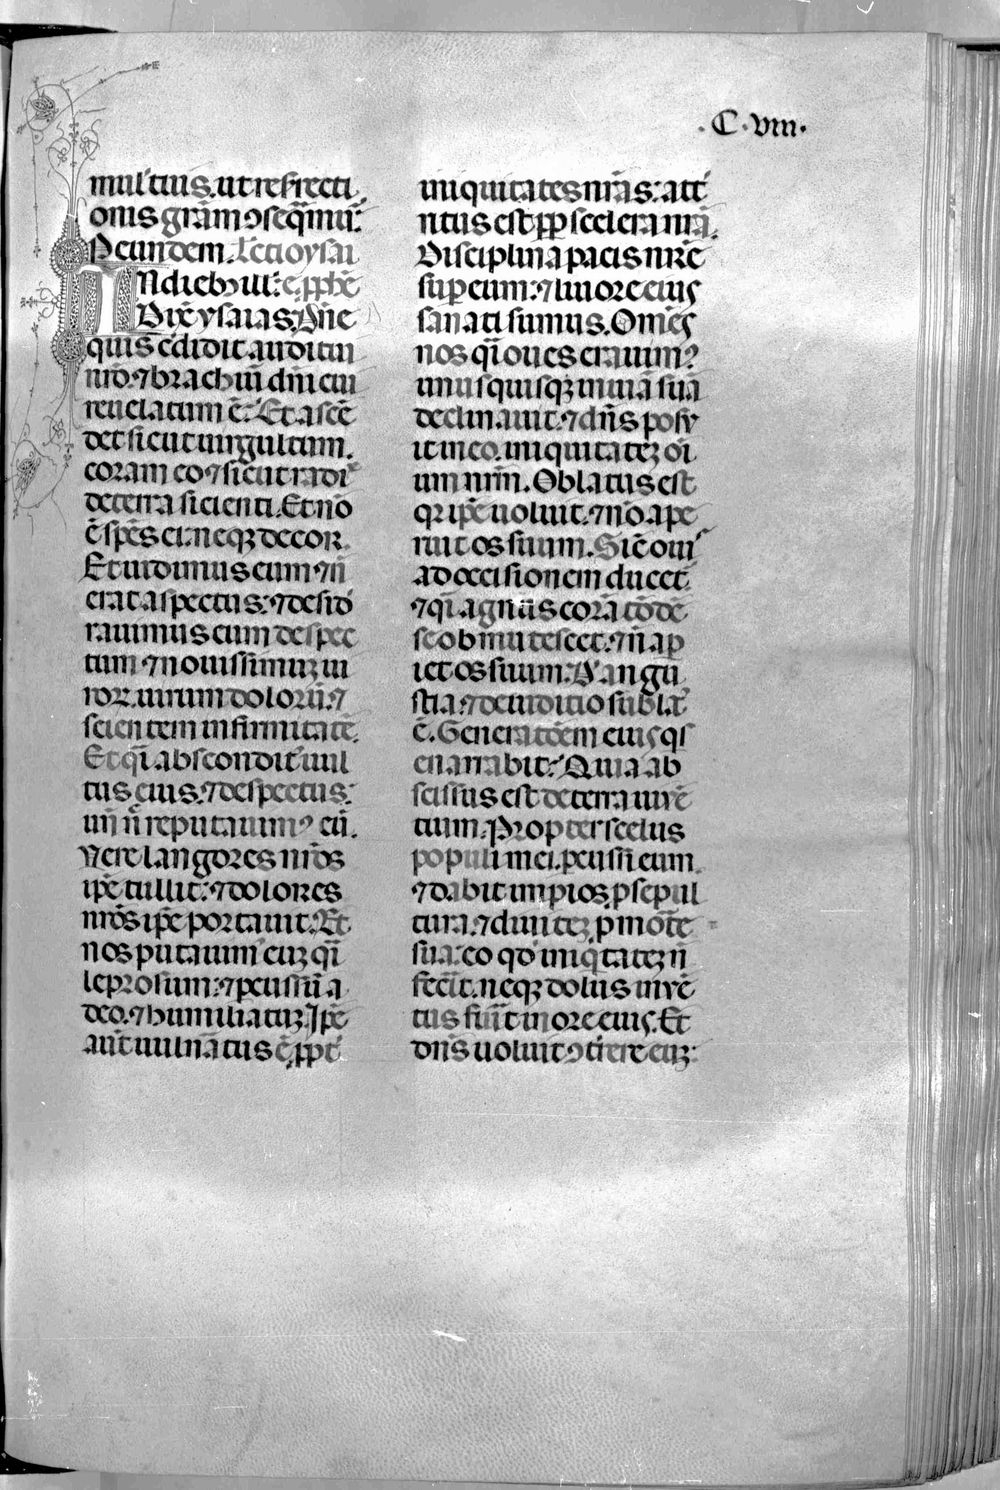 .C.viii.
multius. ut refrecti
onis grām ꝯseq̄mur̄.
P eundem. Lectio ysai
IN diebꝫ ill': e. ꝓphē
Dixē ysaias. Dn̄e
quis c̄didit auditui
nrō. ⁊ brachiū dn̄i cui
reuelatum ē. Et ascē
det sicut uirgultum.
coram eo ⁊ sicut radix
de terra sicienti. Et nō
ē spēs ei: neqꝫ decor.
Et uidimus eum ⁊ n̄
erat aspectus: ⁊ desid
rauimus eum despec
tum ⁊ nouissimuꝫ ui
ror. uirum dolorū. ⁊
scientem infirmitatē.
Et q̄i absconditꝰ uul
tus eius. ⁊ despectus:
un̄ n̄ reputauimꝰ eū.
Vere langores nrōs
ipē tullit: ⁊ dolores
nrōs ipē portauit. Et
nos putauimꝰ euꝫ q̄i
leprosum: ⁊ pcussū a
deo. ⁊ humiliatuꝫ. Ipē
aūt uulnātus ē ꝓpt̄
iniquitates nrās: att
ritus est ꝓp scelera nrā.
Disciplina pacis nrē
sup eum: ⁊ liuore eiꝰ
sanati sumus. Om̄es
nos q̄i oues erauimꝰ
unusquisqꝫ in uiā suā
declinauit. ⁊ dn̄s posu
it in eo. iniquitateꝫ oī
um nrm̄. Oblatus est
qr ipē uoluit. ⁊ nō ape
ruit os suum. Sic̄ ouiˢ
ad occisionem ducet̄.
⁊ q̄i agnus corā tōde
se obmutescet: ⁊ n̄ ap
iet os suum. D' angu
stia. ⁊ de iuditio sublatꝰ
ē. Generatōem eiꝰ qs
enarrabit: Quia ab
scissus est de terra uiuē
tium. Propter scelus
populi mei. pcussi eum.
⁊ dabit impios. p sepul
tura. ⁊ diuiteꝫ p morte
sua: eo qd iniqtateꝫ n̄
fecit. neqꝫ dolus inuē
tus fuit in ore eiꝰ. Et
dn̄s uoluit ꝯterere euꝫ: